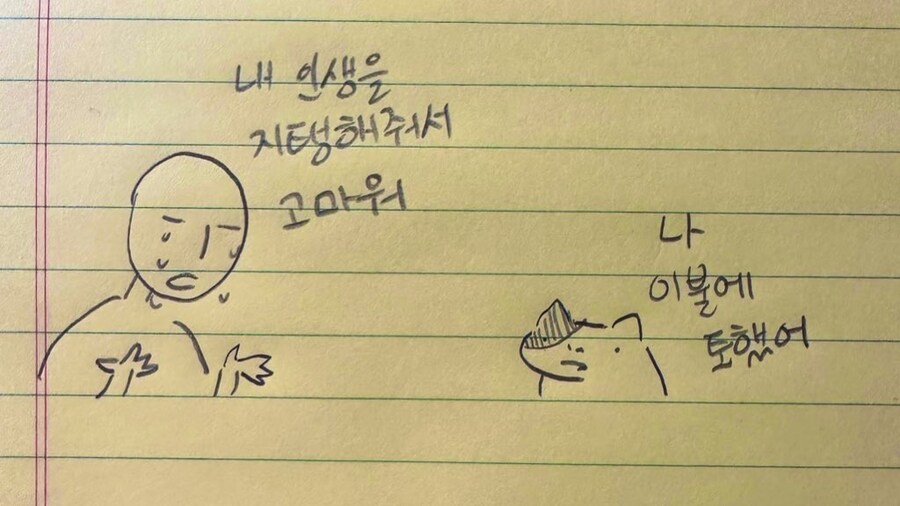 내 인생을
지탱해줘서
고마워
나
이불에
토했어